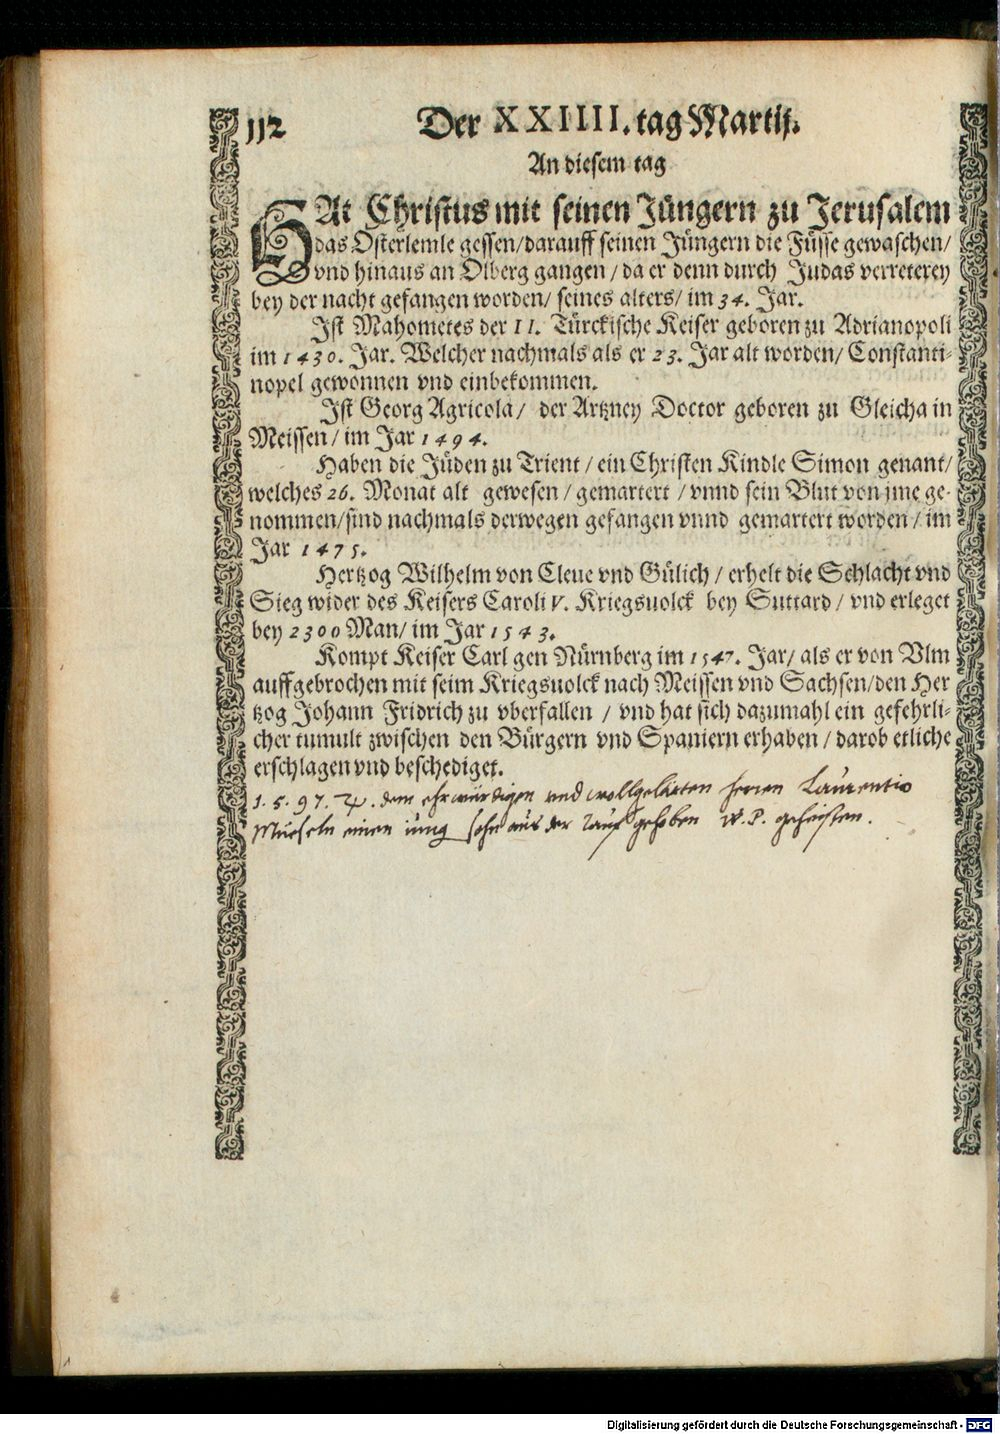 112 Der XXIIII. tag Martij.
An diesem tag
HAt Christus mit seinen Jüngern zu Jerusalem
das Osterlemle gessen/darauff seinen Jüngern die Füsse gewaschen/
vnd hinaus an Olberg gangen/da er denn durch Judas verreterey
bey der nacht gefangen worden/ seines alters/ im 34. Jar.
Ist Mahometes der II. Türckische Keiser geboren zu Adrianopoli
im 1430. Jar. Welcher nachmals als er 23. Jar alt worden/ Constanti-
nopel gewonnen vnd einbekommen.
Ist Georg Agricola/ der Artzney Doctor geboren zu Gleicha in
Meissen/ im Jar 1494.
Haben die Jüden zu Trient/ein Christen Kindle Simon genant/
welches 26. Monat alt gewesen/gemartert/vnnd sein Blut von jme ge-
nommen/sind nachmals derwegen gefangen vnnd gemartert worden/im
Jar 1475.
Hertzog Wilhelm von Cleue vnd Gülich/ erhelt die Schlacht vnd
Sieg wider des Keisers Caroli V. Kriegsuolck bey Suttard/ vnd erleget
bey 2300 Man/ im Jar 1543.
Kompt Keiser Carl gen Nürnberg im 1547. Jar/ als er von Vlm
auffgebrochen mit seim Kriegsuolck nach Meissen vnd Sachsen/den Her
tzog Johann Fridrich zu vberfallen / vnd hat sich dazumahl ein gefehrli-
cher tumult zwischen den Bürgern vnd Spaniern erhaben/darob etliche
erschlagen vnd beschediget.
1.5.97. dem ehrwürdigen vnd wollgelärten herren Laurentio
einen iung sohn aus der Tauf gehoben W. P. geheisten.
Digitalisierung gefördert durch die Deutsche Forschungsgemeinschaft - DFG